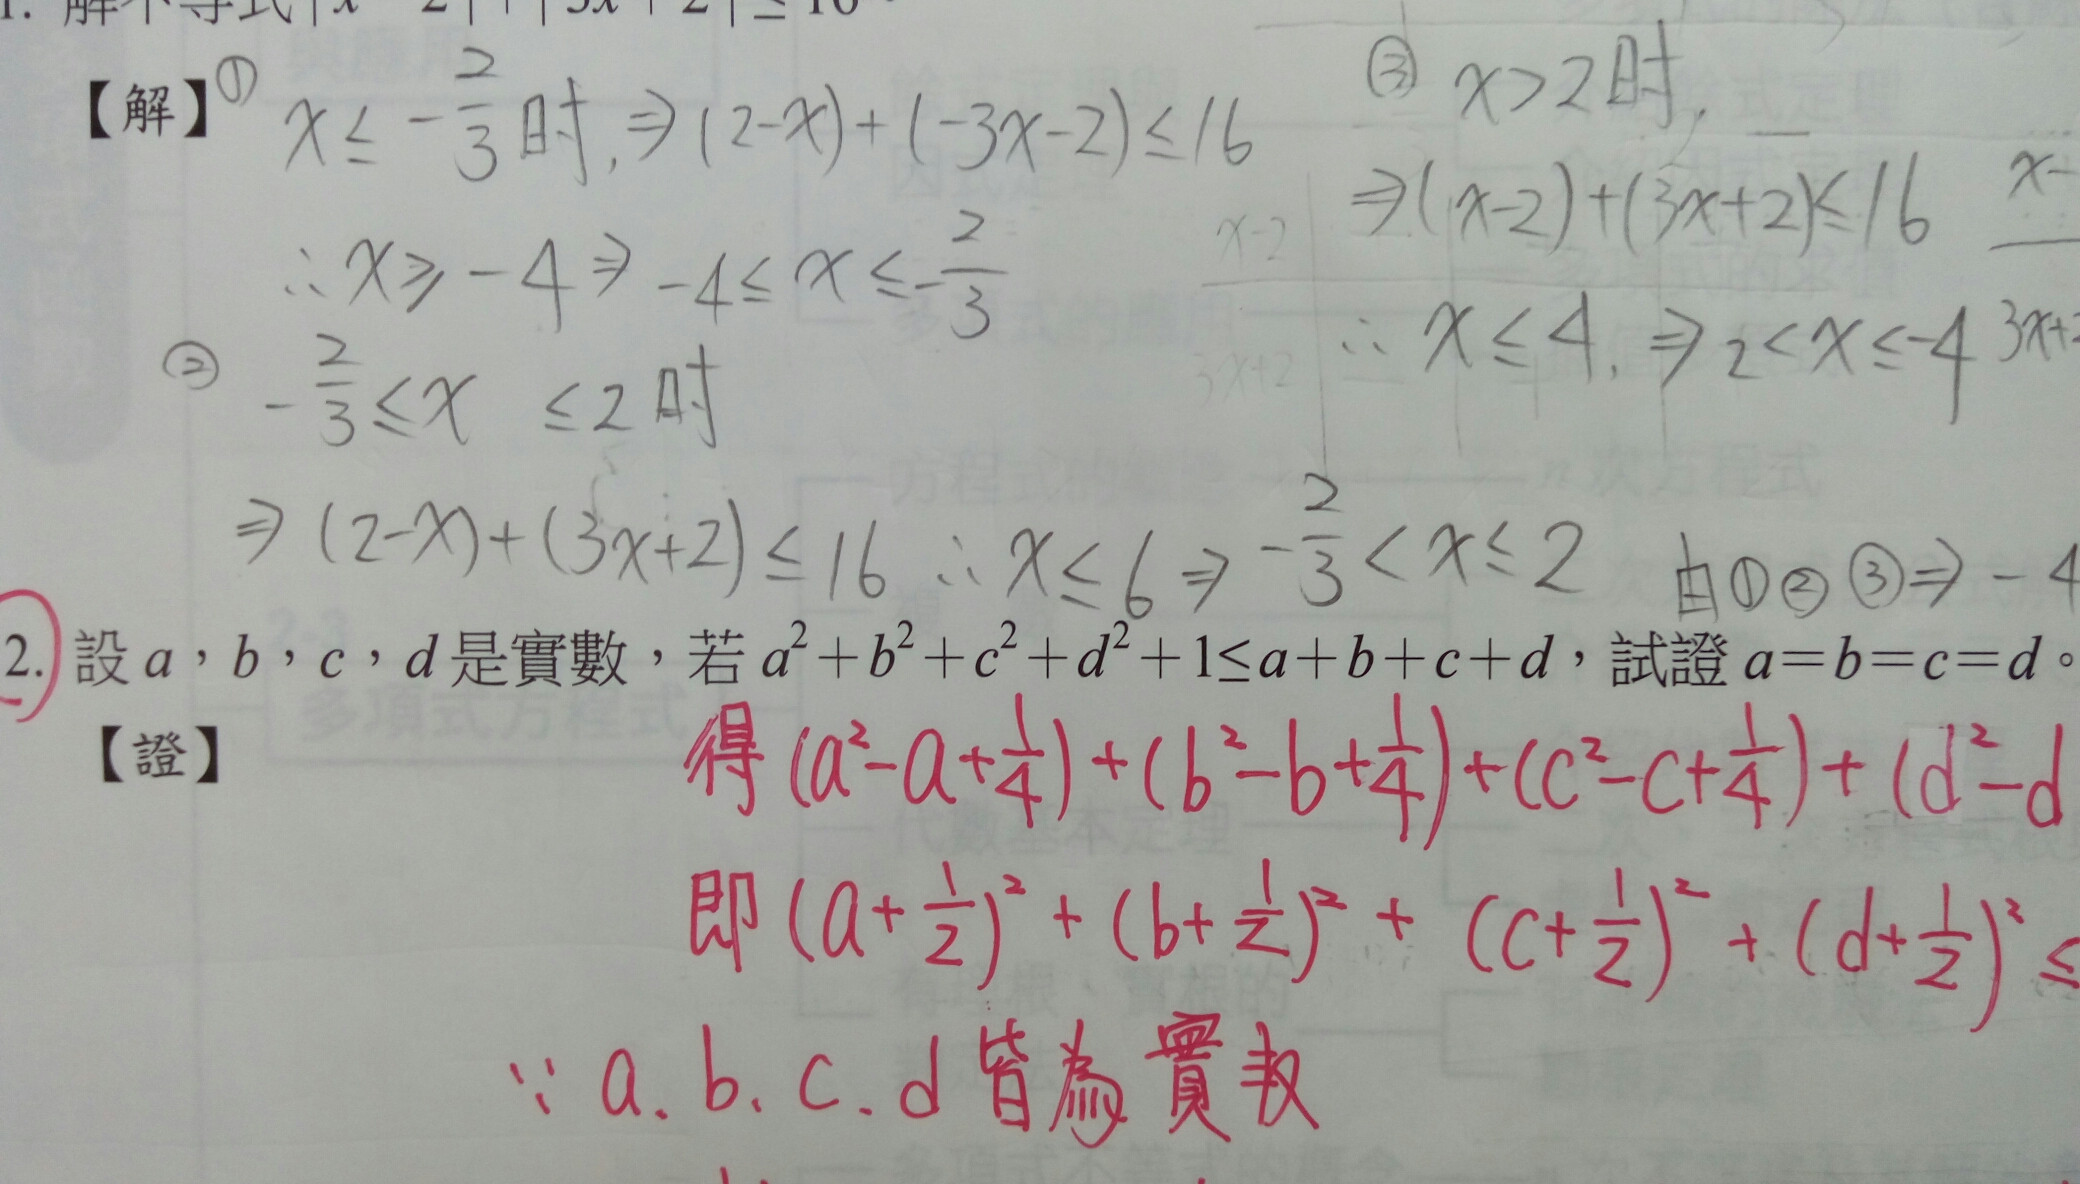 1. 解不等式|x－2|＋|3x＋2|≤16。
【解】① x≤-2/3时,⇒(2-x)+(-3x-2)≤16
∴x≥-4⇒-4≤x≤-2/3
② -2/3≤x ≤2时
⇒(2-x)+(3x+2)≤16 ∴x≤6⇒-2/3<x≤2
③ x>2时,
⇒(x-2)+(3x+2)≤16
∴x≤4,⇒2<x≤-4
x-2
3x+2
x-
3x+2
由①②③⇒-4
2. 設a，b，c，d是實數，若a²＋b²＋c²＋d²＋1≤a＋b＋c＋d，試證a＝b＝c＝d。
【證】
得(a²-a+1/4)+(b²-b+1/4)+(c²-c+1/4)+(d²-d
即(a+1/2)²+(b+1/2)²+(c+1/2)²+(d+1/2)²≤
∵a.b.c.d皆為實数